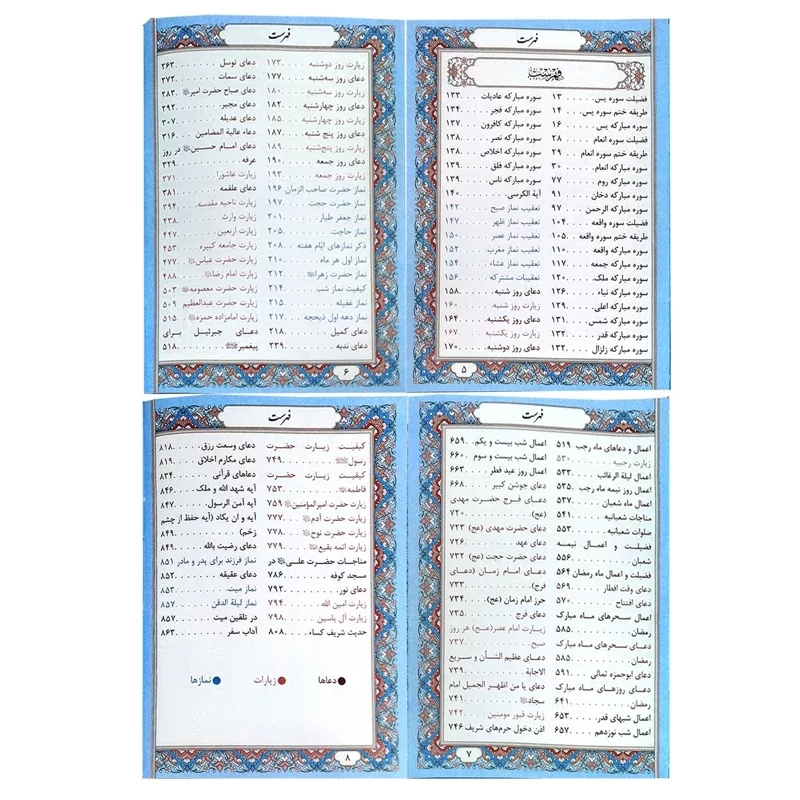 فهرست
فهرست
فضیلت سوره یس ۱۳
طریقه ختم سوره یس ۱۴
سوره مبارکه یس ۱۶
فضیلت سوره انعام ۲۸
طریقه ختم سوره انعام ۲۹
سوره مبارکه انعام ۳۰
سوره مبارکه روم ۷۷
سوره مبارکه دخان ۹۱
سوره مبارکه الرحمن ۹۷
فضیلت سوره واقعه ۱۰۴
طریقه ختم سوره واقعه ۱۰۵
سوره مبارکه واقعه ۱۱۰
سوره مبارکه جمعه ۱۱۷
سوره مبارکه ملک ۱۲۰
سوره مبارکه نباء ۱۲۶
سوره مبارکه اعلی ۱۲۹
سوره مبارکه شمس ۱۳۱
سوره مبارکه قدر ۱۳۲
سوره مبارکه زلزال ۱۳۲
سوره مبارکه عادیات ۱۳۳
سوره مبارکه فجر ۱۳۴
سوره مبارکه کافرون ۱۳۷
سوره مبارکه نصر ۱۳۸
سوره مبارکه اخلاص ۱۳۸
سوره مبارکه فلق ۱۳۹
سوره مبارکه ناس ۱۳۹
آیة الکرسی ۱۴۰
تعقیب نماز صبح ۱۴۲
تعقیب نماز ظهر ۱۴۷
تعقیب نماز عصر ۱۵۰
تعقیب نماز مغرب ۱۵۲
تعقیب نماز عشاء ۱۵۴
تعقیبات مشترکه ۱۵۶
دعای روز شنبه ۱۵۸
زیارت روز شنبه ۱۶۰
دعای روز یکشنبه ۱۶۴
زیارت روز یکشنبه ۱۶۷
دعای روز دوشنبه ۱۷۰
۵
فهرست
زیارت روز دوشنبه ۱۷۳
دعای روز سه‌شنبه ۱۷۷
زیارت روز سه‌شنبه ۱۸۰
دعای روز چهارشنبه ۱۸۲
زیارت روز چهارشنبه ۱۸۵
دعای روز پنج شنبه ۱۸۷
زیارت روز پنج‌شنبه ۱۸۹
دعای روز جمعه ۱۹۰
زیارت روز جمعه ۱۹۳
نماز حضرت صاحب الزمان ۱۹۶
نماز حضرت حجت ۱۹۷
نماز جعفر طیار ۲۰۱
نماز حاجت ۲۰۵
ذکر نمازهای ایّام هفته ۲۰۸
نماز اول هر ماه ۲۱۰
نماز حضرت زهرا ۲۱۲
کیفیت نماز شب ۲۱۴
نماز غفیله ۲۱۵
نماز دهه اول ذیحجه ۲۱۷
دعای کمیل ۲۱۸
دعای ندبه ۲۳۹
دعای توسل ۲۶۳
دعای سمات ۲۷۲
دعای صباح حضرت امیر ۲۸۳
دعای مجیر ۲۹۲
دعای عدیله ۳۰۷
دعاء عالیة المضامین ۳۱۶
دعای امام حسین در روز
عرفه ۳۲۹
زیارت عاشورا ۳۷۱
دعای علقمه ۳۸۱
زیارت ناحیه مقدسه ۳۹۴
زیارت وارث ۴۳۸
زیارت اربعین ۴۴۷
زیارت جامعه کبیره ۴۵۳
زیارت حضرت عباس ۴۷۷
زیارت امام رضا ۴۸۸
زیارت حضرت معصومه ۵۰۳
زیارت حضرت عبدالعظیم ۵۰۹
زیارت امامزاده حمزه ۵۱۵
دعای جبرئیل برای
پیغمبر ۵۱۸
۶
فهرست
اعمال و دعاهای ماه رجب ۵۱۹
زیارت رجبیه ۵۳۰
اعمال لیلة الرغائب ۵۳۳
اعمال روز نیمه ماه رجب ۵۳۵
اعمال ماه شعبان ۵۳۷
مناجات شعبانیه ۵۴۱
صلوات شعبانیه ۵۵۳
فضیلت و اعمال نیمه
شعبان ۵۵۶
فضیلت و اعمال ماه رمضان ۵۶۴
دعای وقت افطار ۵۶۹
دعای افتتاح ۵۷۰
اعمال سحرهای ماه مبارک
رمضان ۵۸۵
دعای سحرهای ماه مبارک
رمضان ۵۸۵
دعای ابوحمزه ثمالی ۵۹۱
دعای روزهای ماه مبارک
رمضان ۶۴۱
اعمال شبهای قدر ۶۵۳
اعمال شب نوزدهم ۶۵۷
اعمال شب بیست و یکم ۶۵۹
اعمال شب بیست و سوم ۶۶۰
اعمال روز عید فطر ۶۶۳
دعای جوشن کبیر ۶۶۸
دعای فرج حضرت مهدی
(عج) ۷۲۰
دعای حضرت مهدی (عج) ۷۲۳
دعای عهد ۷۲۶
دعای حضرت حجت (عج) ۷۳۲
دعای امام زمان (دعای
فرج) ۷۳۳
حرز امام زمان (عج) ۷۳۴
دعای فرج ۷۳۵
زیارت امام عصر(عج) هر روز
صبح ۷۳۷
دعای عظیم الشأن و سریع
الاجابة ۷۳۹
دعای یا من اظهر الجمیل امام
سجاد ۷۴۱
زیارت قبور مومنین ۷۴۲
اذن دخول حرم‌های شریف ۷۴۶
۷
فهرست
کیفیت زیارت حضرت
رسول ۷۴۹
کیفیت زیارت حضرت
فاطمه ۷۵۳
زیارت حضرت امیرالمؤمنین ۷۵۹
زیارت حضرت آدم ۷۷۷
زیارت حضرت نوح ۷۷۸
زیارت ائمه بقیع ۷۷۹
مناجات حضرت علی در
مسجد کوفه ۷۸۶
دعای نور ۷۹۲
زیارت امین الله ۷۹۴
زیارت آل یاسین ۷۹۸
حدیث شریف کساء ۸۰۸
دعای وسعت رزق ۸۱۸
دعای مکارم اخلاق ۸۱۹
دعاهای قرآنی ۸۳۴
آیه شهد الله و ملک ۸۴۶
آیه آمن الرسول ۸۴۷
آیه و ان یکاد (آیه حفظ از چشم
زخم) ۸۴۹
دعای رضیت بالله ۸۴۹
نماز فرزند برای پدر و مادر ۸۵۱
دعای عقیقه ۸۵۲
نماز میت ۸۵۳
نماز لیلة الدفن ۸۵۷
در تلقین میت ۸۵۷
آداب سفر ۸۶۳
دعاها
زیارات
نمازها
۸